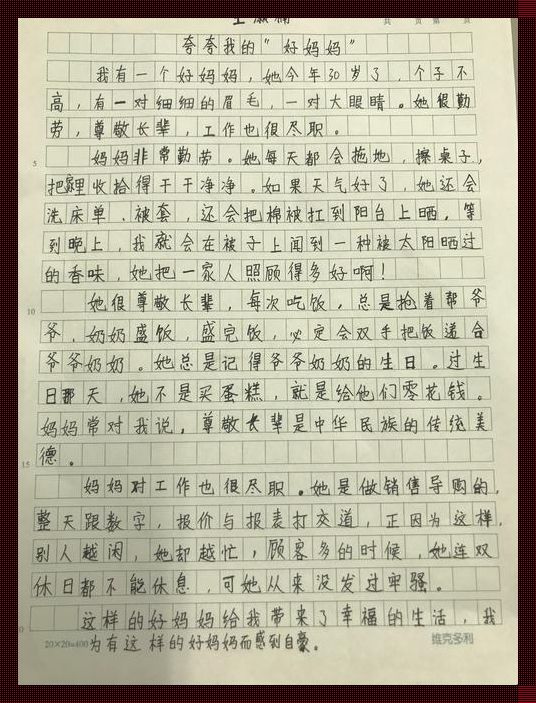 共 页 第 页
夸夸我的“好妈妈”
我有一个好妈妈,她今年30岁了,个子不
高,有一对细细的眉毛,一对大眼睛。她很勤
劳,尊敬长辈,工作也很尽职。
妈妈非常勤劳。她每天都会拖地,擦桌子,
5
把家里收拾得干干净净。如果天气好了,她还会
洗床单、被套,还会把棉被扛到阳台上晒,等
到晚上,我就会在被子上闻到一种被太阳晒过
的香味,她把一家人照顾得多好啊!
她很尊敬长辈,每次吃饭,总是抢着帮爷
10
爷、奶奶盛饭,盛完饭,必定会双手把饭递给
爷爷奶奶。她总是记得爷爷奶奶的生日。过生
日那天,她不是买蛋糕,就是给他们零花钱。
妈妈常对我说,尊敬长辈是中华民族的传统美
德。
15
妈妈对工作也很尽职。她是做销售导购的,
整天跟数字,报价与报表打交道,正因为这样,
别人越闲,她却越忙,顾客多的时候,她连双
休日都不能休息,可她从来没发过牢骚。
这样的好妈妈给我带来了幸福的生活,我
为有这样的好妈妈而感到自豪。
20×20=400
维克多利